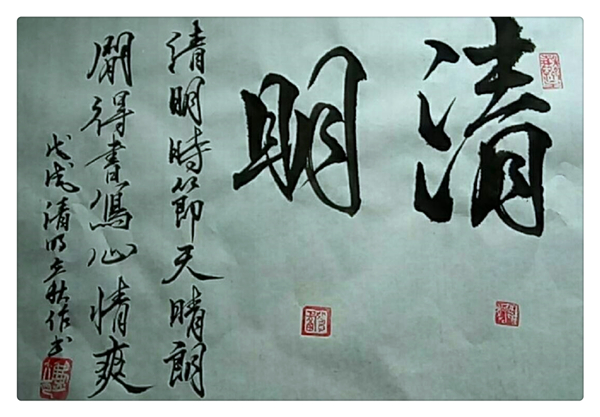 清明
清明時節天晴朗
閑得書寫心情爽
戊戌清明作书